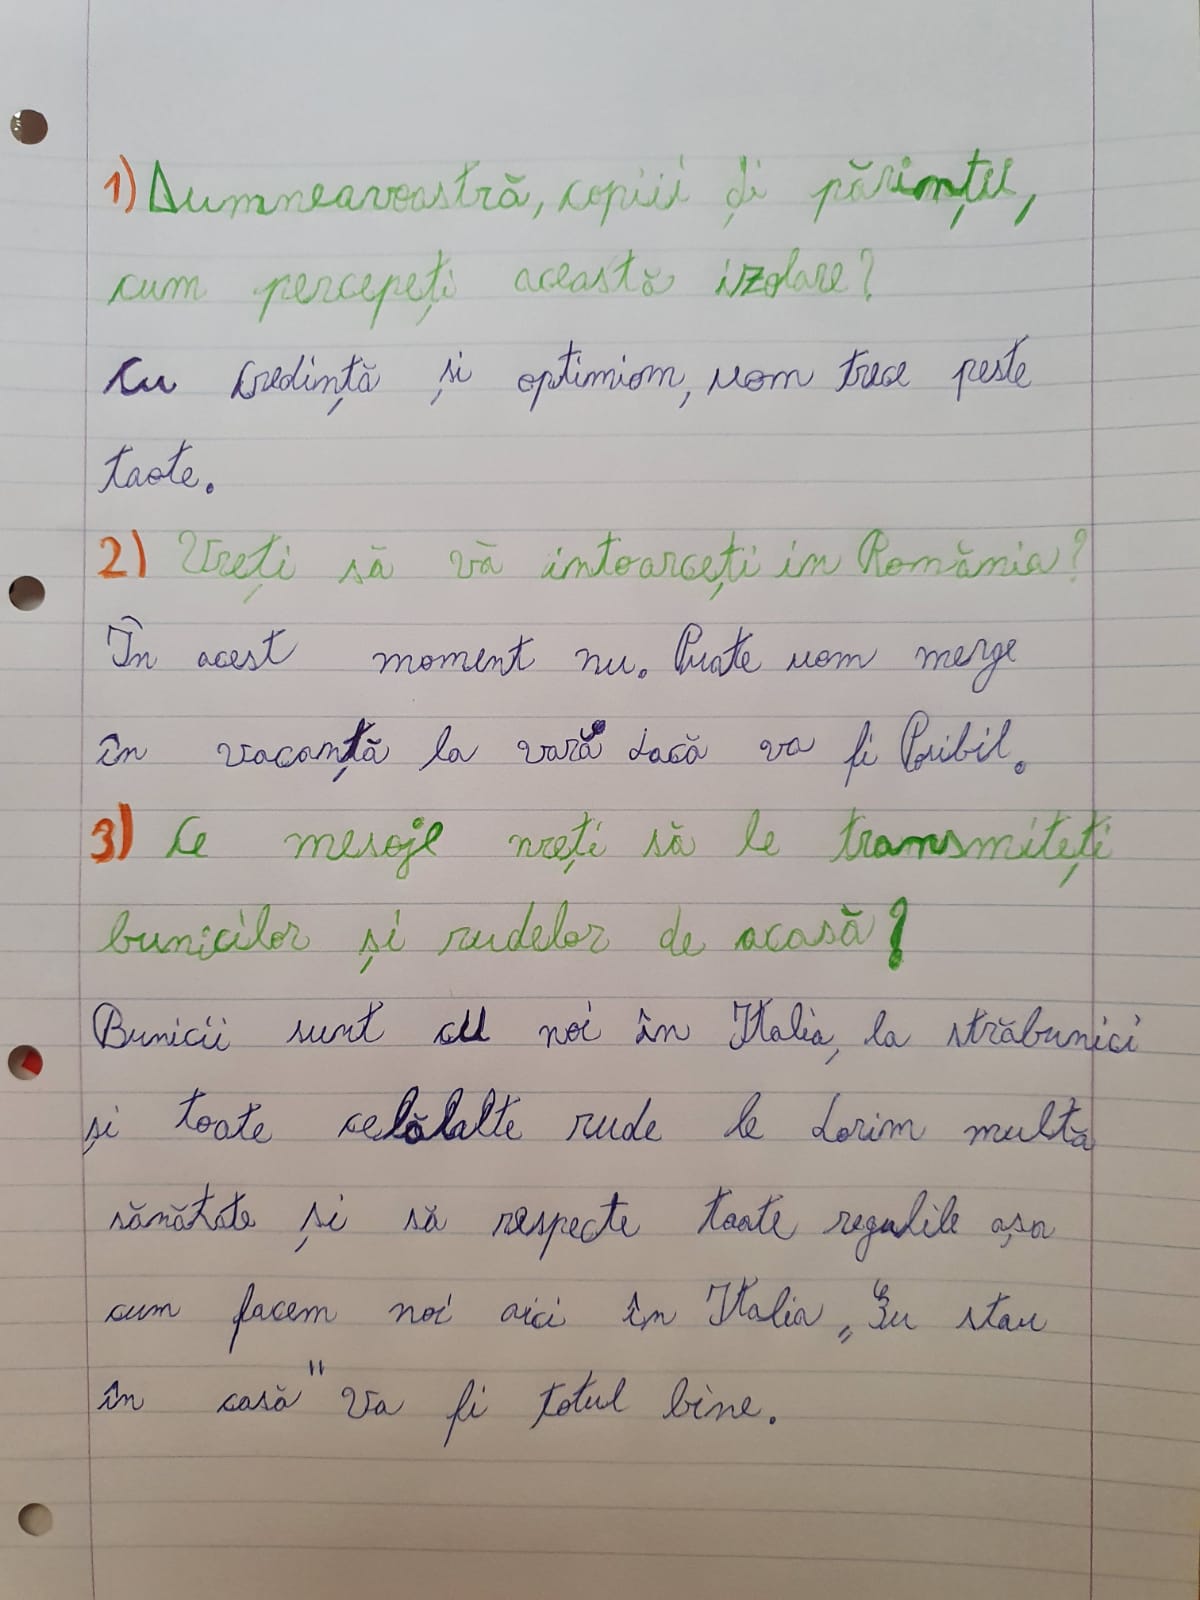 1) Dumneavoastră, copiii și părinții,
cum percepeți această izolare?
Cu credință și optimiom, vom trece peste
toate.
2) Vreți să vă intoarceți in România?
În acest moment nu. Puate vom merge
în vacanță la vară dacă va fi Posibil.
3) Ce mesaje vreți să le transmiteți
bunicilor și rudelor de acasă?
Bunicii sunt cu noi în Italia, la străbunici
și toate celălalte rude le dorim multă
sănătate și să respecte toate regulile așa
cum facem noi aici în Italia „Eu stau
în casă" Va fi totul bine.